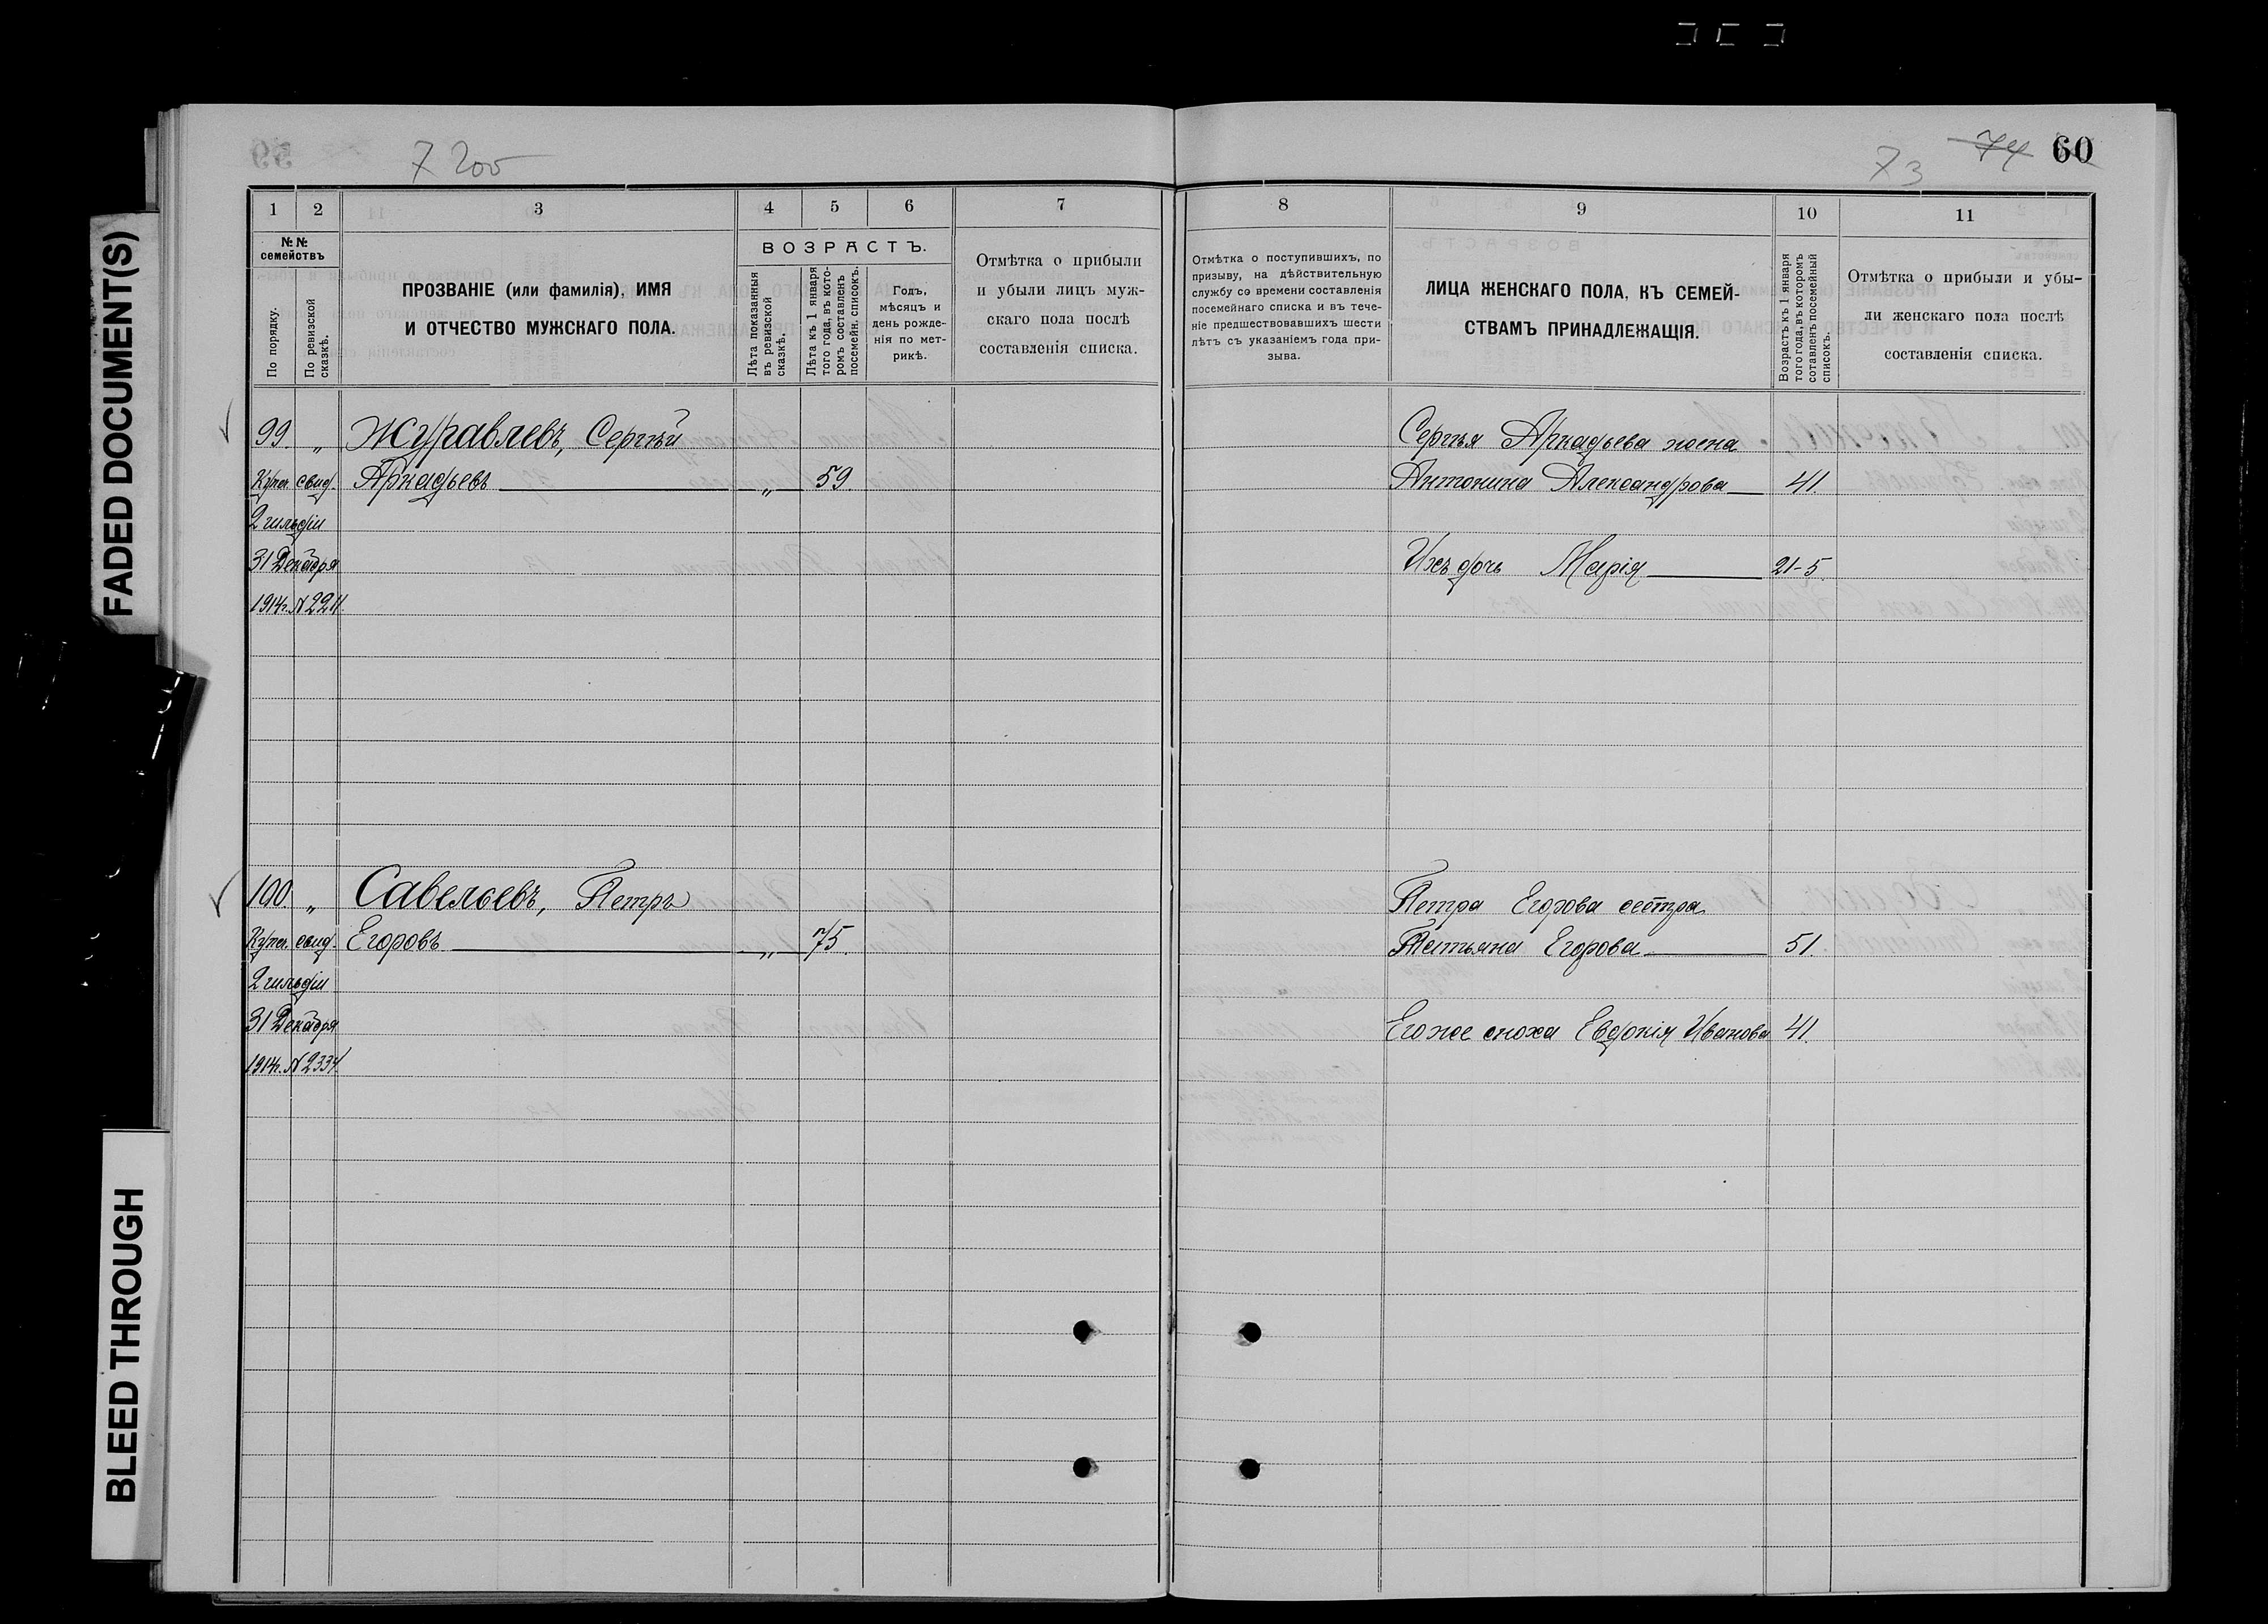 FADED DOCUMENT(S)
BLEED THROUGH
7 200
73 74 60
1 2 3 4 5 6 7
№№ семействъ
По порядку.
По ревизской сказкѣ.
ПРОЗВАНІЕ (или фамилія), ИМЯ
И ОТЧЕСТВО МУЖСКАГО ПОЛА.
ВОЗРАСТЪ.
Лѣта показанныя въ ревизской сказкѣ.
Лѣта къ 1 января того года, въ которомъ составленъ посемейн. списокъ.
Годъ, мѣсяцъ и день рожденія по метрикѣ.
Отмѣтка о прибыли
и убыли лицъ муж-
скаго пола послѣ
составленія списка.
99 „ Журавлевъ, Сергѣй
Купеч. свид. Аркадьевъ „ 59
2 гильдіи
31 Декабря
1914г. №2211.
100 „ Савельевъ, Петръ
Купеч. свид. Егоровъ „ 75.
2 гильдіи
31 Декабря
1914г. №2334.
8 9 10 11
Отмѣтка о поступившихъ, по
призыву, на дѣйствительную
службу со времени составленія
посемейнаго списка и въ тече-
ніе предшествовавшихъ шести
лѣтъ съ указаніемъ года при-
зыва.
ЛИЦА ЖЕНСКАГО ПОЛА, КЪ СЕМЕЙ-
СТВАМЪ ПРИНАДЛЕЖАЩІЯ.
Возрастъ къ 1 января
того года, въ которомъ
сотавленъ посемейный
списокъ.
Отмѣтка о прибыли и убы-
ли женскаго пола послѣ
составленія списка.
Сергѣя Аркадьева жена
Антонина Александрова 41.
Ихъ дочь Марія 21-5.
Петра Егорова сестра
Татьяна Егорова 51.
Его же сноха Евдокія Иванова 41.